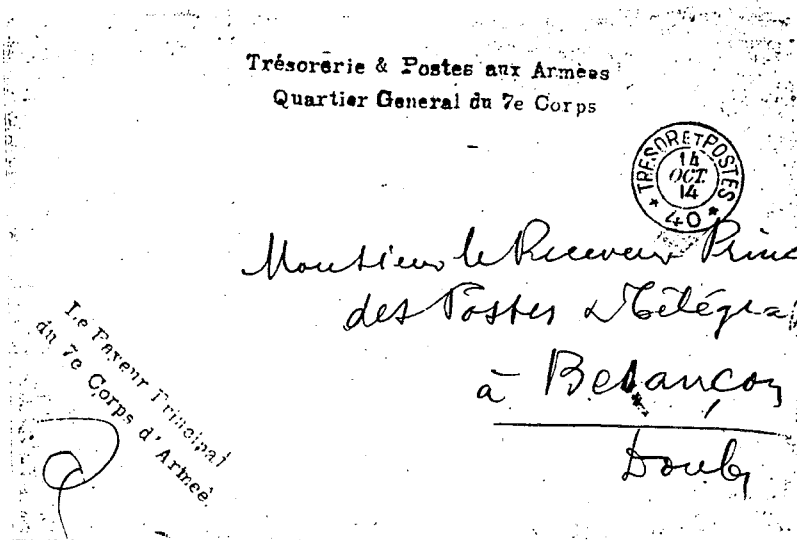 Trésorerie & Postes aux Armées
Quartier General du 7e Corps
* TRESOR ET POSTES *
14
OCT.
14
40
Monsieur le Receveur Princ
des Postes & Télégra
à Besançon
Doubs
Le Payeur Principal
du 7e Corps d'Armée.